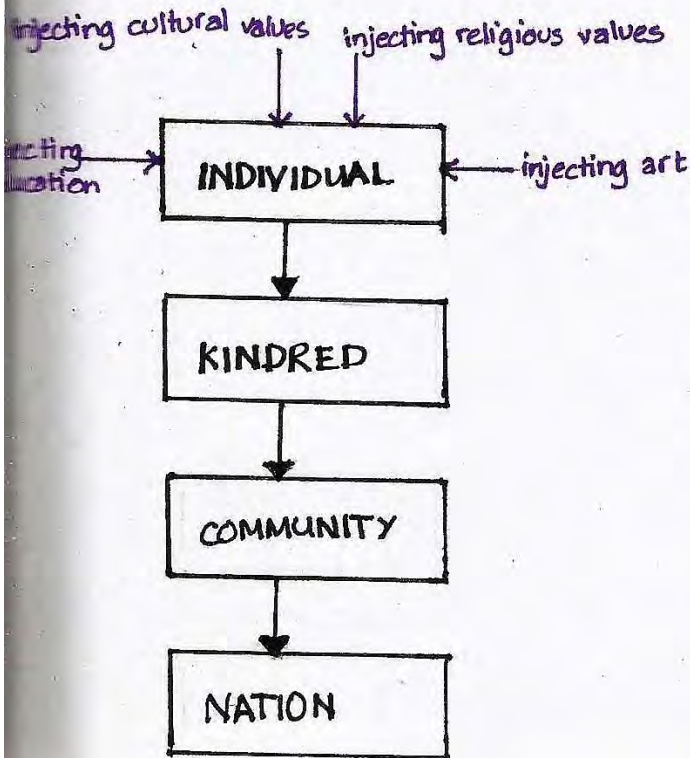 injecting cultural values
injecting religious values
INDIVIDUAL
injecting art
KINDRED
COMMUNITY
NATION